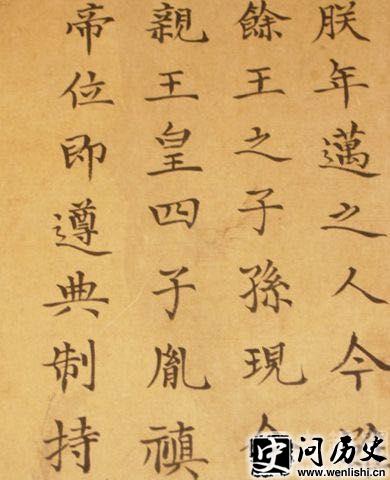 朕年邁之人今
餘王之子孫現
親王皇四子胤禛
帝位即遵典制持
史问历史
www.wenlishi.cn